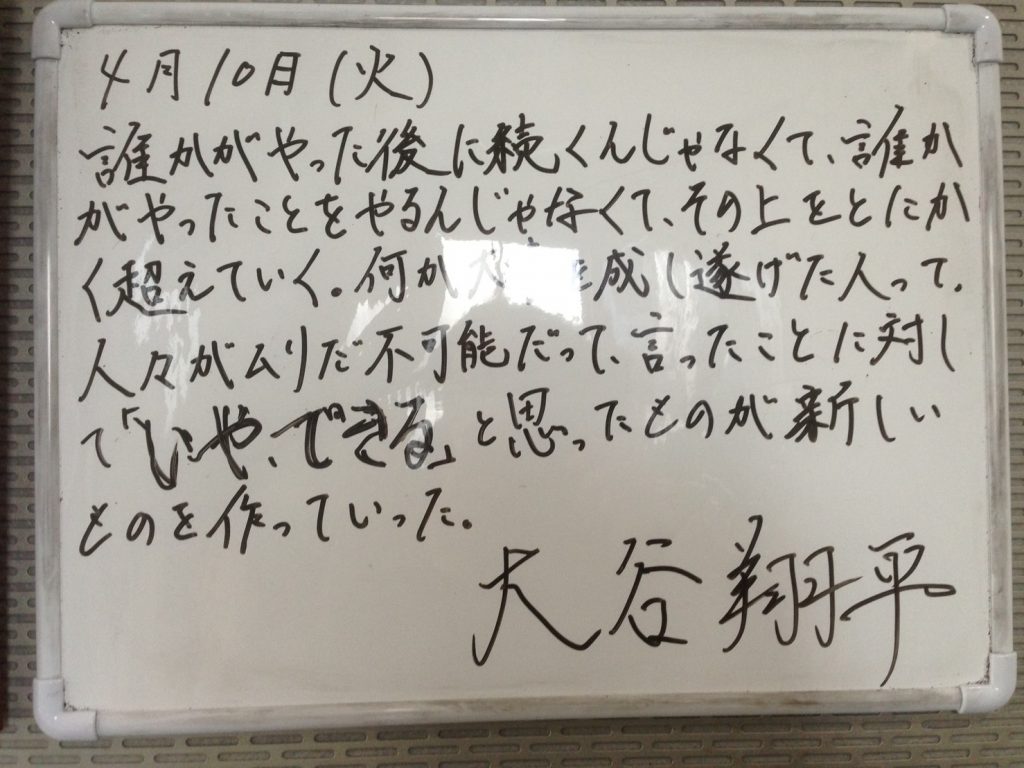 4月10日(火)
誰かがやった後に続くんじゃなくて、誰か
がやったことをやるんじゃなくて、その上をとにか
く超えていく。何か大 成し遂げた人って、
人々がムリだ不可能だって、言ったことに対し
て「いや、できる」と思ったものが新しい
ものを作っていった。
大谷翔平